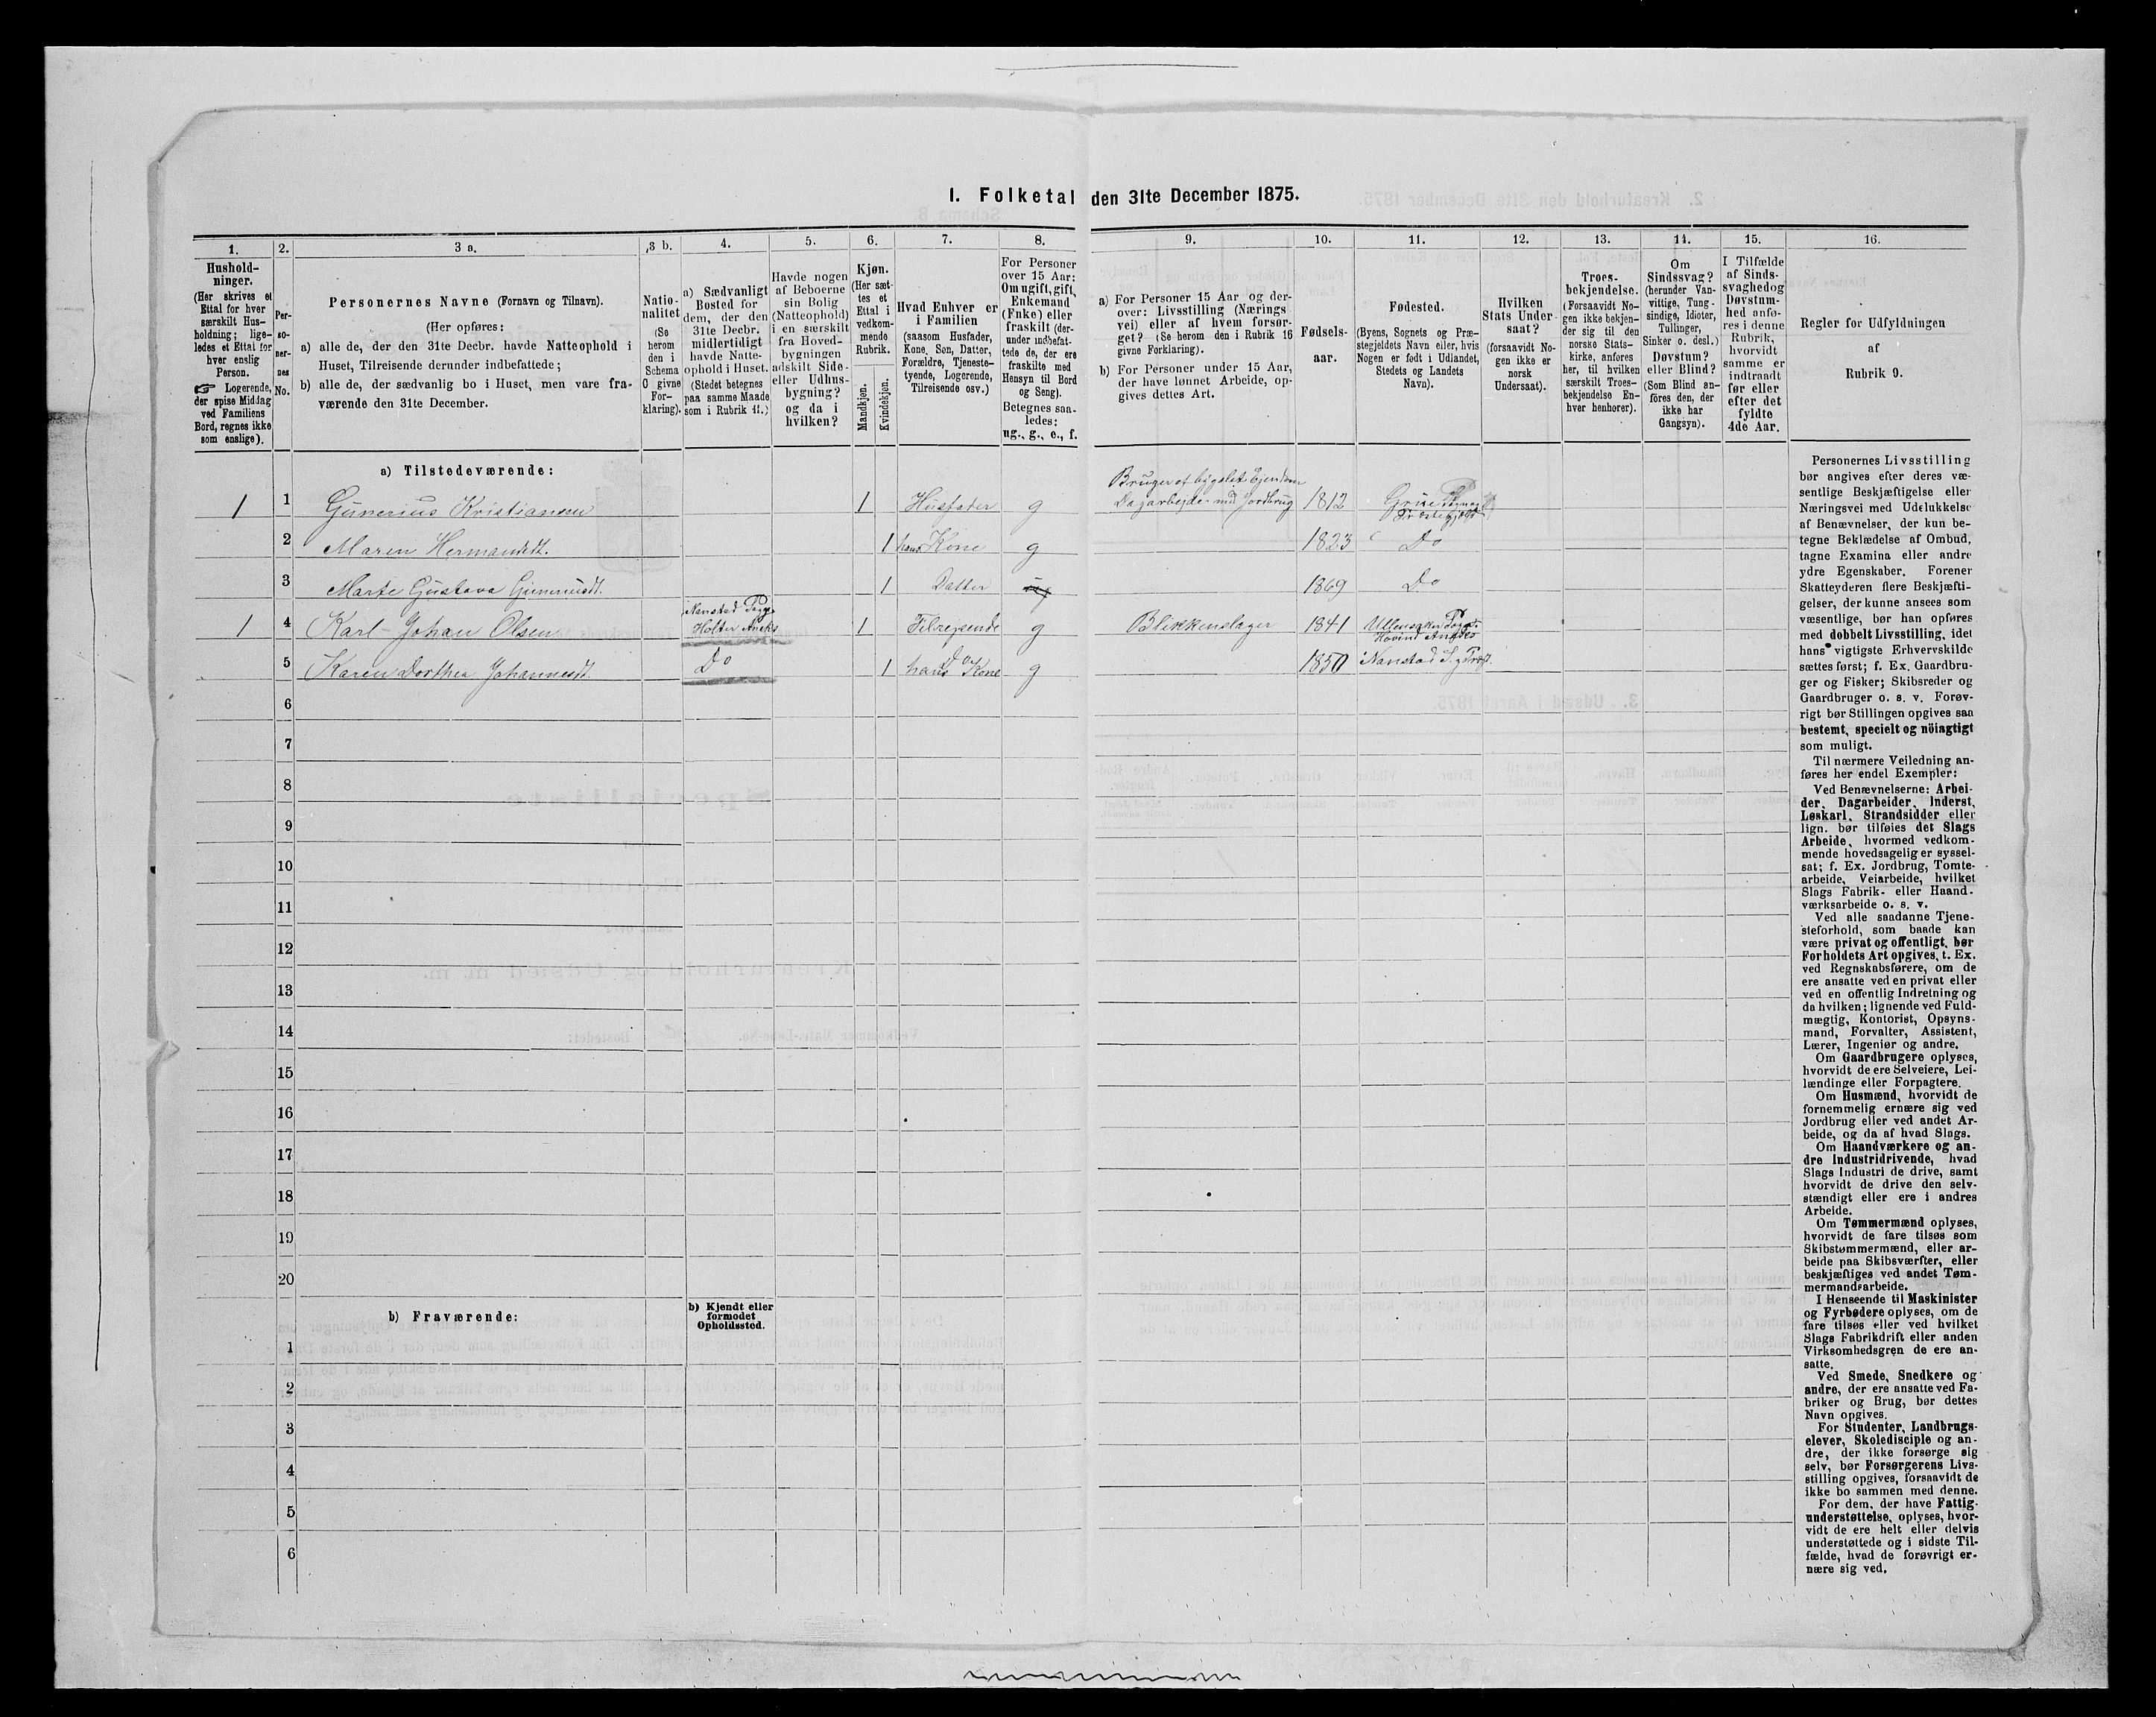 I. Folketal den 31te December 1875.
1.
Hushold-
ninger.
(Her skrives et
Ettal for hver
særskilt Hus-
holdning; lige-
ledes et Ettal for
hver enslig
Person.
☞ Logerende,
der spise Middag
ved Familiens
Bord, regnes ikke
som enslige).
2.
Per-
so-
ner-
nes
No.
3 a.
Personernes Navne (Fornavn og Tilnavn).
(Her opføres:
a) alle de, der den 31te Decbr. havde Natteophold i
Huset, Tilreisende derunder indbefattede;
b) alle de, der sædvanlig bo i Huset, men vare fra-
værende den 31te December.
3 b.
Natio-
nalitet
(Se
herom
den i
Schema
C givne
For-
klaring).
4.
a) Sædvanligt
Bosted for
dem, der den
31te Decbr.
midlertidigt
havde Natte-
ophold i Huset.
(Stedet betegnes
paa samme Maade
som i Rubrik 11.)
5.
Havde nogen
af Beboerne
sin Bolig
(Natteophold)
i en særskilt
fra Hoved-
bygningen
adskilt Side-
eller Udhus-
bygning?
og da i
hvilken?
6.
Kjøn.
(Her sæt-
tes et
Ettal i
vedkom-
mende
Rubrik.
Mandkjøn.
Kvindekjøn.
7.
Hvad Enhver er
i Familien
(saasom Husfader,
Kone, Søn, Datter,
Forældre, Tjeneste-
tyende, Logerende,
Tilreisende osv.)
8.
For Personer
over 15 Aar:
Om ugift, gift,
Enkemand
(Enke) eller
fraskilt (der-
under indbefat-
tede de, der ere
fraskilte med
Hensyn til Bord
og Seng).
Betegnes saa-
ledes:
ug., g., e., f.
9.
a) For Personer 15 Aar og der-
over: Livsstilling (Nærings
vei) eller af hvem forsør-
get? (Se herom den i Rubrik 16
givne Forklaring).
b) For Personer under 15 Aar,
der have lønnet Arbeide, op-
gives dettes Art.
10.
Fødsels-
aar.
11.
Fødested.
(Byens, Sognets og Præ-
stegjeldets Navn eller, hvis
Nogen er født i Udlandet,
Stedets og Landets
Navn).
12.
Hvilken
Stats Under-
saat?
(forsaavidt No-
gen ikke er
norsk
Undersaat).
13.
Troes-
bekjendelse.
(Forsaavidt No-
gen ikke bekjen-
der sig til den
norske Stats-
kirke, anføres
her, til hvilken
særskilt Troes-
bekjendelse En-
hver henhører).
14.
Om
Sindssvag?
(herunder Van-
vittige, Tung-
sindige, Idioter,
Tullinger,
Sinker o. desl.)
Døvstum?
eller Blind?
(Som Blind an-
føres den, der
ikke har
Gangsyn).
15.
I Tilfælde
af Sinds-
svaghed og
Døvstum-
hed anfø-
res i denne
Rubrik,
hvorvidt
samme er
indtraadt
før eller
efter det
fyldte
4de Aar.
16.
Regler for Udfyldningen
af
Rubrik 9.
a) Tilstedeværende:
1 1 Gunerius Kristiansen 1 Husfader g Bruger af bygslet Ejendom
Dagarbejde med Jordbrug 1812 Grue Sogn
Præstegjeld
2 Maren Hermansdt. 1 hans Kone g 1823 Do
3 Marte Gustava Gunriusdt. 1 Datter ug 1869 Do
1 4 Karl Johan Olsen Nanstad Prgj.
Holter Aneks 1 Tilrejsende g Blikkenslager 1841 Ullensaker Prgj.
Hovind Anneks
5 Karen Dorthea Johannesdt. Do 1 Do
hans Kone g 1850 Nanstad S. g Præst.
6
7
8
9
10
11
12
13
14
15
16
17
18
19
20
b) Fraværende:
b) Kjendt eller
formodet
Opholdssted.
1
2
3
4
5
6
Personernes Livsstilling
bør angives efter deres væ-
sentlige Beskjæftigelse eller
Næringsvei med Udelukkelse
af Benævnelser, der kun be-
tegne Beklædelse af Ombud,
tagne Examina eller andre
ydre Egenskaber. Forener
Skatteyderen flere Beskjæfti-
gelser, der kunne ansees som
væsentlige, bør han opføres
med dobbelt Livsstilling, idet
hans vigtigste Erhvervskilde
sættes først; f. Ex. Gaardbru-
ger og Fisker; Skibsreder og
Gaardbruger o. s. v. Forøv-
rigt bør Stillingen opgives saa
bestemt, specielt og nöiagtigt
som muligt.
Til nærmere Veiledning an-
føres her endel Exempler:
Ved Benævnelserne: Arbei-
der, Dagarbeider, Inderst,
Løskarl, Strandsidder eller
lign. bør tilføies det Slags
Arbeide, hvormed vedkom-
mende hovedsagelig er syssel-
sat; f. Ex. Jordbrug, Tomte-
arbeide, Veiarbeide, hvilket
Slags Fabrik- eller Haand-
værksarbeide o. s. v.
Ved alle saadanne Tjene-
steforhold, som baade kan
være privat og offentligt, bør
Forholdets Art opgives, t. Ex.
ved Regnskabsførere, om de
ere ansatte ved en privat eller
ved en offentlig Indretning og
da hvilken; lignende ved Fuld-
mægtig, Kontorist, Opsyns-
mand, Forvalter, Assistent,
Lærer, Ingeniør og andre.
Om Gaardbrugere oplyses,
hvorvidt de ere Selveiere, Lei-
lændinge eller Forpagtere.
Om Husmænd, hvorvidt de
fornemmelig ernære sig ved
Jordbrug eller ved andet Ar-
beide, og da af hvad Slags.
Om Haandværkere og an-
dre Industridrivende, hvad
Slags Industri de drive, samt
hvorvidt de drive den selv-
stændigt eller ere i andres
Arbeide.
Om Tømmermænd oplyses,
hvorvidt de fare tilsøs som
Skibstømmermænd, eller ar-
beide paa Skibsværfter, eller
beskjæftiges ved andet Tøm-
mermandsarbeide.
I Henseende til Maskinister
og Fyrbødere oplyses, om de
fare tilsøs eller ved hvilket
Slags Fabrikdrift eller anden
Virksomhedsgren de ere an-
satte.
Ved Smede, Snedkere og
andre, der ere ansatte ved Fa-
briker og Brug, bør dettes
Navn opgives.
For Studenter, Landbrugs-
elever, Skoledisciple og an-
dre, der ikke forsørge sig
selv, bør Forsørgerens Livs-
stilling opgives, forsaavidt de
ikke bo sammen med denne.
For dem, der have Fattig-
understøttelse, oplyses, hvor-
vidt de ere helt eller delvis
understøttede og i sidste Til-
fælde, hvad de forøvrigt er-
nære sig ved.